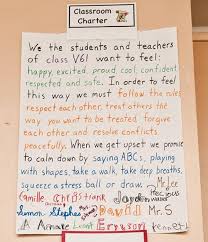 Classroom
Charter
We the students and teachers
of class V61 want to feel:
happy, excited, proud, cool, confident
respected and safe. In order to feel
this way we must follow the rules
respect each other, treat others the
way you want to be treated forgive
each other and resolve conflicts
peacefully. When we get upset we promise
to calm down by saying ABCs, playing
with shapes, take a walk, take deep breaths,
squeeze a stress ball or draw. Ms. Lee
Camille Christians Jayden Precious
Simon Stephes David Mr. S
A Annare Liam Erickson Kenneth